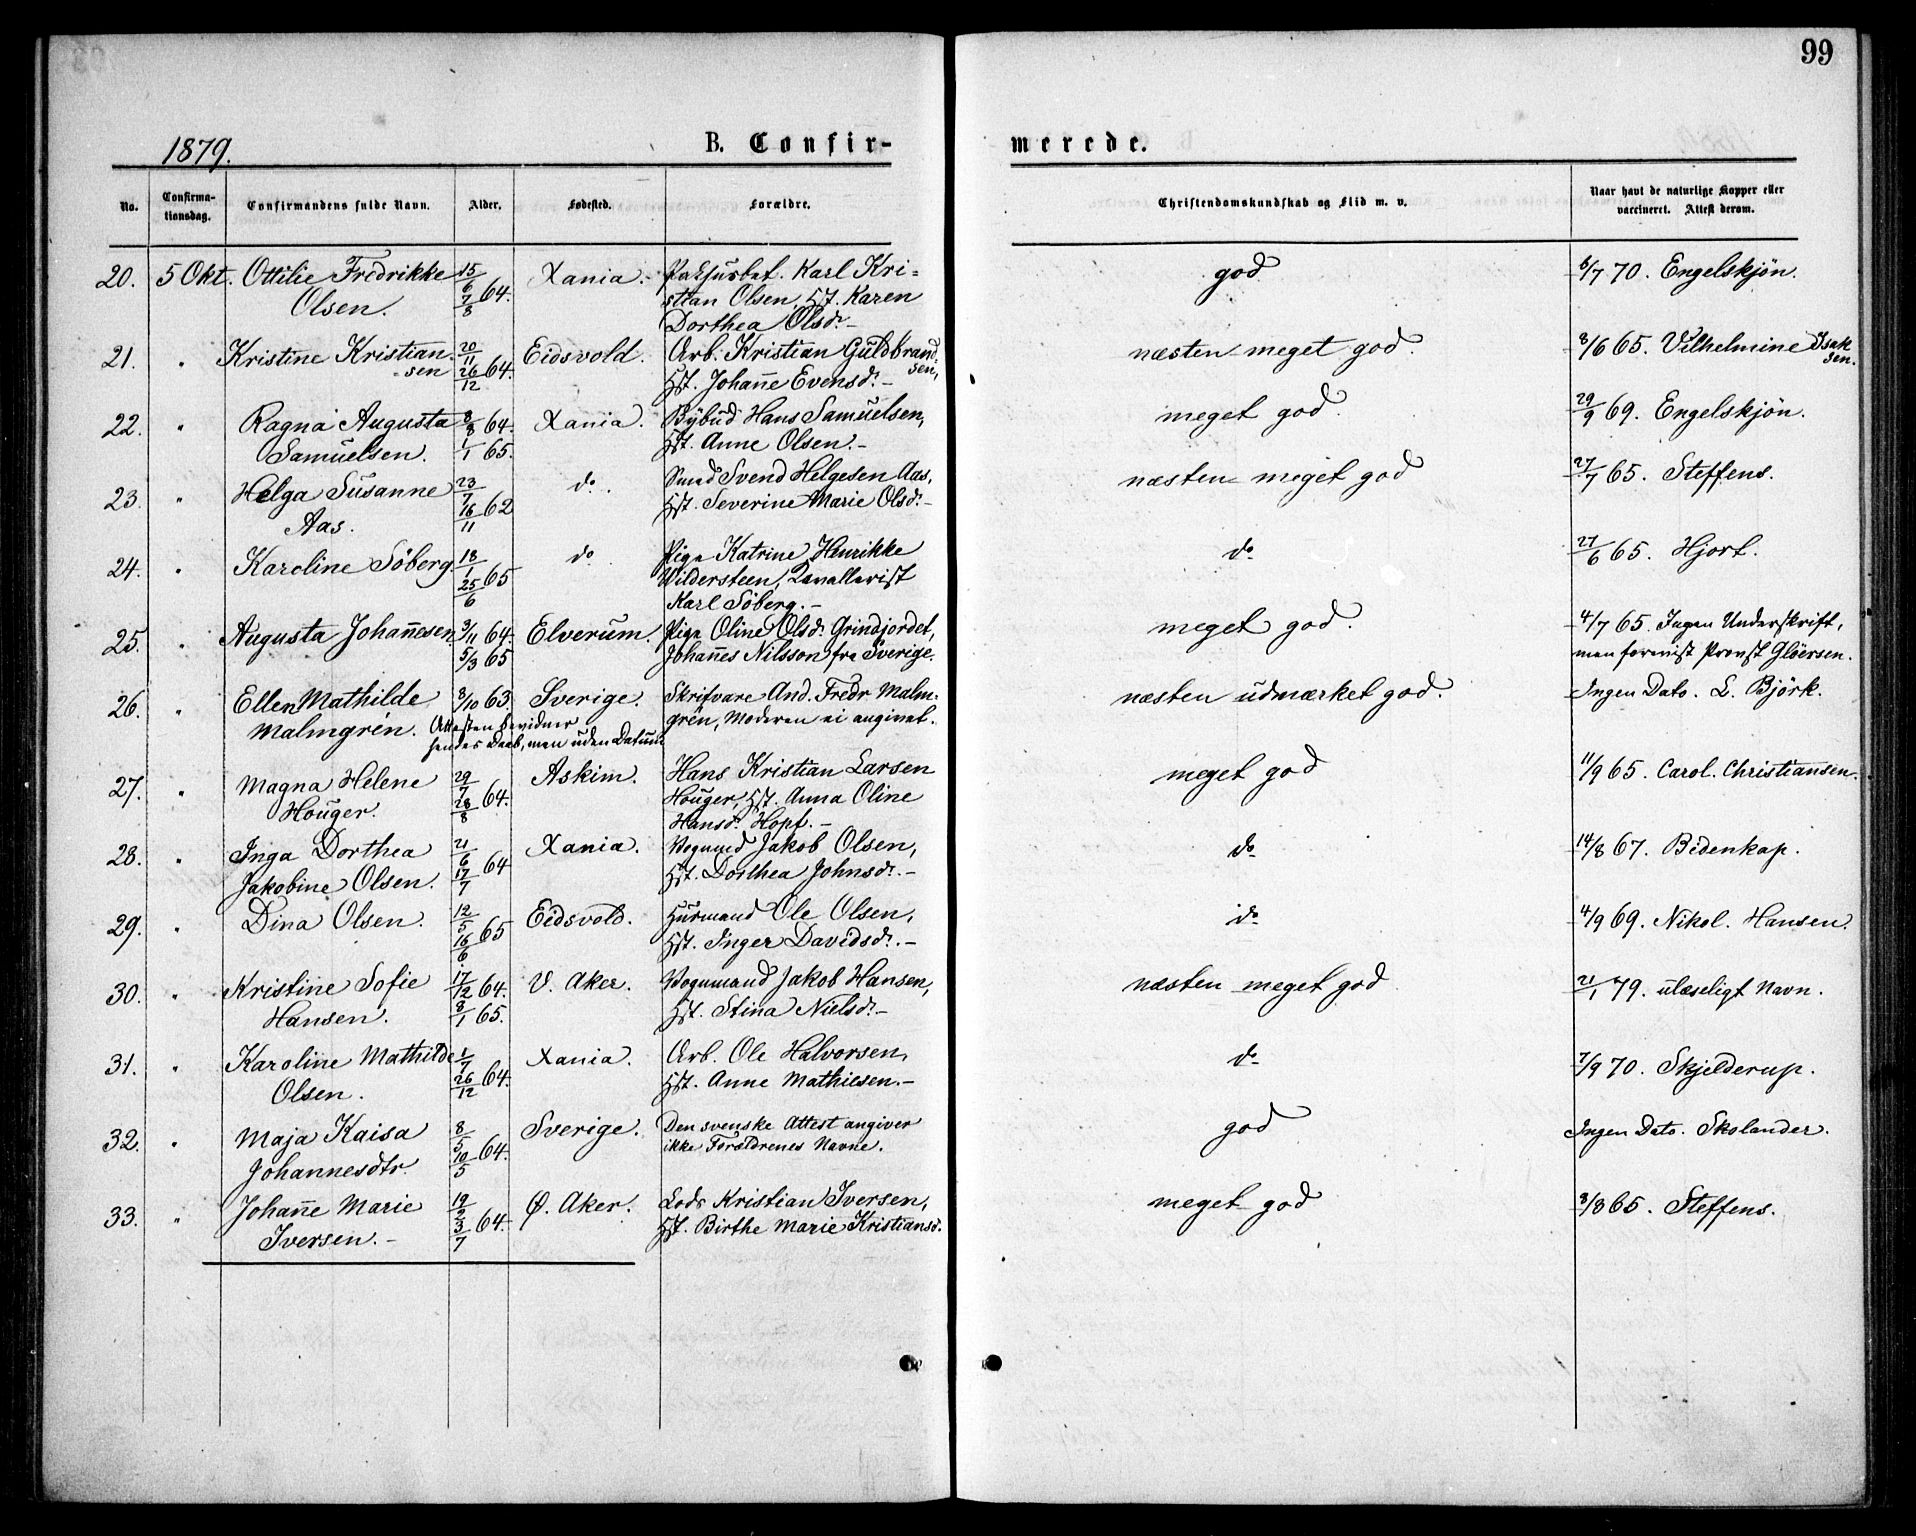 99
1879.
B. Confirmerede.
No. Confirmationsdag. Confirmandens fulde Navn. Alder. Fødested. Forældre. Christendomskundskab og Flid m. v. Naar havt de naturlige Kopper eller vaccineret. Attest derom.
20. 5 Okt. Ottilie Fredrikke 15/6 64. Xania. Karl Kri= god 6/7 70. Engelskjøn.
Olsen. 7/8 stian Olsen, Hst. Karen
Dorthea Olsdr. –
21. " Kristine Kristian 20/11 64. Eidsvold. Arb. Kristian Guldbrand næsten meget god. 3/6 65. Vilhelmine Isak
sen 26/12 sen, sen.
Hst. Johanne Evensdr. –
22. " Ragna Augusta 8/8 64. Xania. Bybud Hans Samuelsen, meget god. 29/9 69. Engelskjøn.
Samuelsen. 1/1 65. Hst. Anne Olsen. –
23. " Helga Susanne 23/7 62 do. Svend Helgesen Aas, næsten meget god 27/7 65. Steffens.
Aas. 16/11 Hst. Severine Marie Olsdr. –
24. " Karoline Söberg. 18/1 65 do. Pige Katrine Henrikke do 27/6 65. Hjort.
25/6 Vildersteen, Kavallerist
Karl Söberg. –
25. " Augusta Johannesen. 3/11 64. Elverum. Pige Oline Olsdr. Grindjordet, meget god. 4/7 65. Ingen Underskrift,
5/3 65 Johannes Nilsson fra Sverige. men forevist Provst Glöersen.
26. " Ellen Mathilde 8/10 63. Sverige. Skrifvare And. Fredr Malm- næsten udmærket god. Ingen Dato. L. Björk.
Malmgrén. Attesten bevidner grén, Moderen ei angivet.
hendes Daab, men uden Datum
27. " Magna Helene 29/7 64. Askim. Hans Kristian Larsen meget god 11/9 65. Carol. Christiansen.
Houger. 28/8 Houger, Hst. Anna Oline
Hansdr. Hopf. –
28. " Inga Dorthea 21/6 64 Xania. Vognmd Jakob Olsen, do 14/8 67. Bidenkap.
Jakobine Olsen. 17/7 Hst. Dorthea Johnsdr. –
29. " Dina Olsen. 12/5 65 Eidsvold. Husmand Ole Olsen, do 4/9 69. Nikol. Hansen.
16/6 Hst. Inger Davidsdr. –
30. " Kristine Sofie 17/12 64. V. Aker. Vognmand Jakob Hansen, næsten meget god 21/1 79. ulæseligt Navn.
Hansen. 8/1 65. Hst. Stina Nielsdr. –
31. " Karoline Mathilde 1/7 64. Xania. Arb. Ole Halvorsen, do 7/9 70. Skjelderup.
Olsen. 26/12 Hst. Anne Mathiesen. –
32. " Maja Kaisa 8/5 64. Sverige. Den svenske Attest angiver god Ingen Dato. Skolander.
Johannesdtr. 10/5 ikke Forældrenes Navne.
33. " Johanne Marie 19/2 64. Ø. Aker. Lods Kristian Iversen, meget god 3/8 65. Steffens.
Iversen. – 3/7 Hst. Birthe Marie Kristiansd.